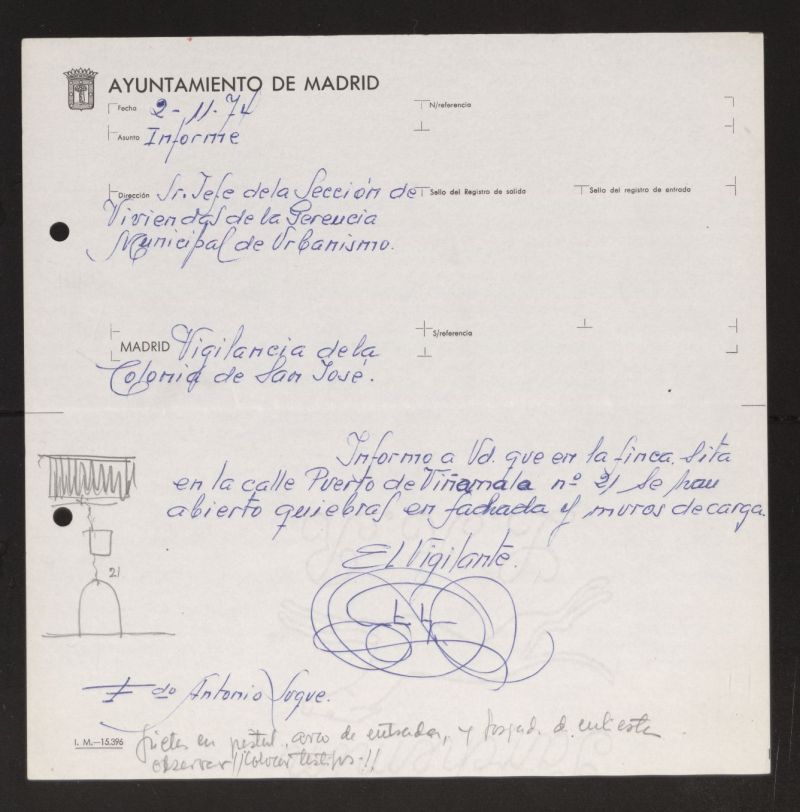 AYUNTAMIENTO DE MADRID
Fecha 2-11-74
N/referencia
Asunto Informe
Dirección Sr. Jefe dela Sección de
Sello del Registro de salida
Sello del registro de entrada
Viviendas de la Gerencia
Municipal de Urbanismo.
MADRID Vigilancia dela
S/referencia
Colonia de San José.
Informo a Vd. que en la finca sita
en la calle Puerto de Viñamala nº 21 se han
abierto quiebras en fachada y muros de carga.
21
El Vigilante.
Fdo Antonio Luque.
I. M.—15.396
en arco de entradas, y
observar!! Colocar testigos!!